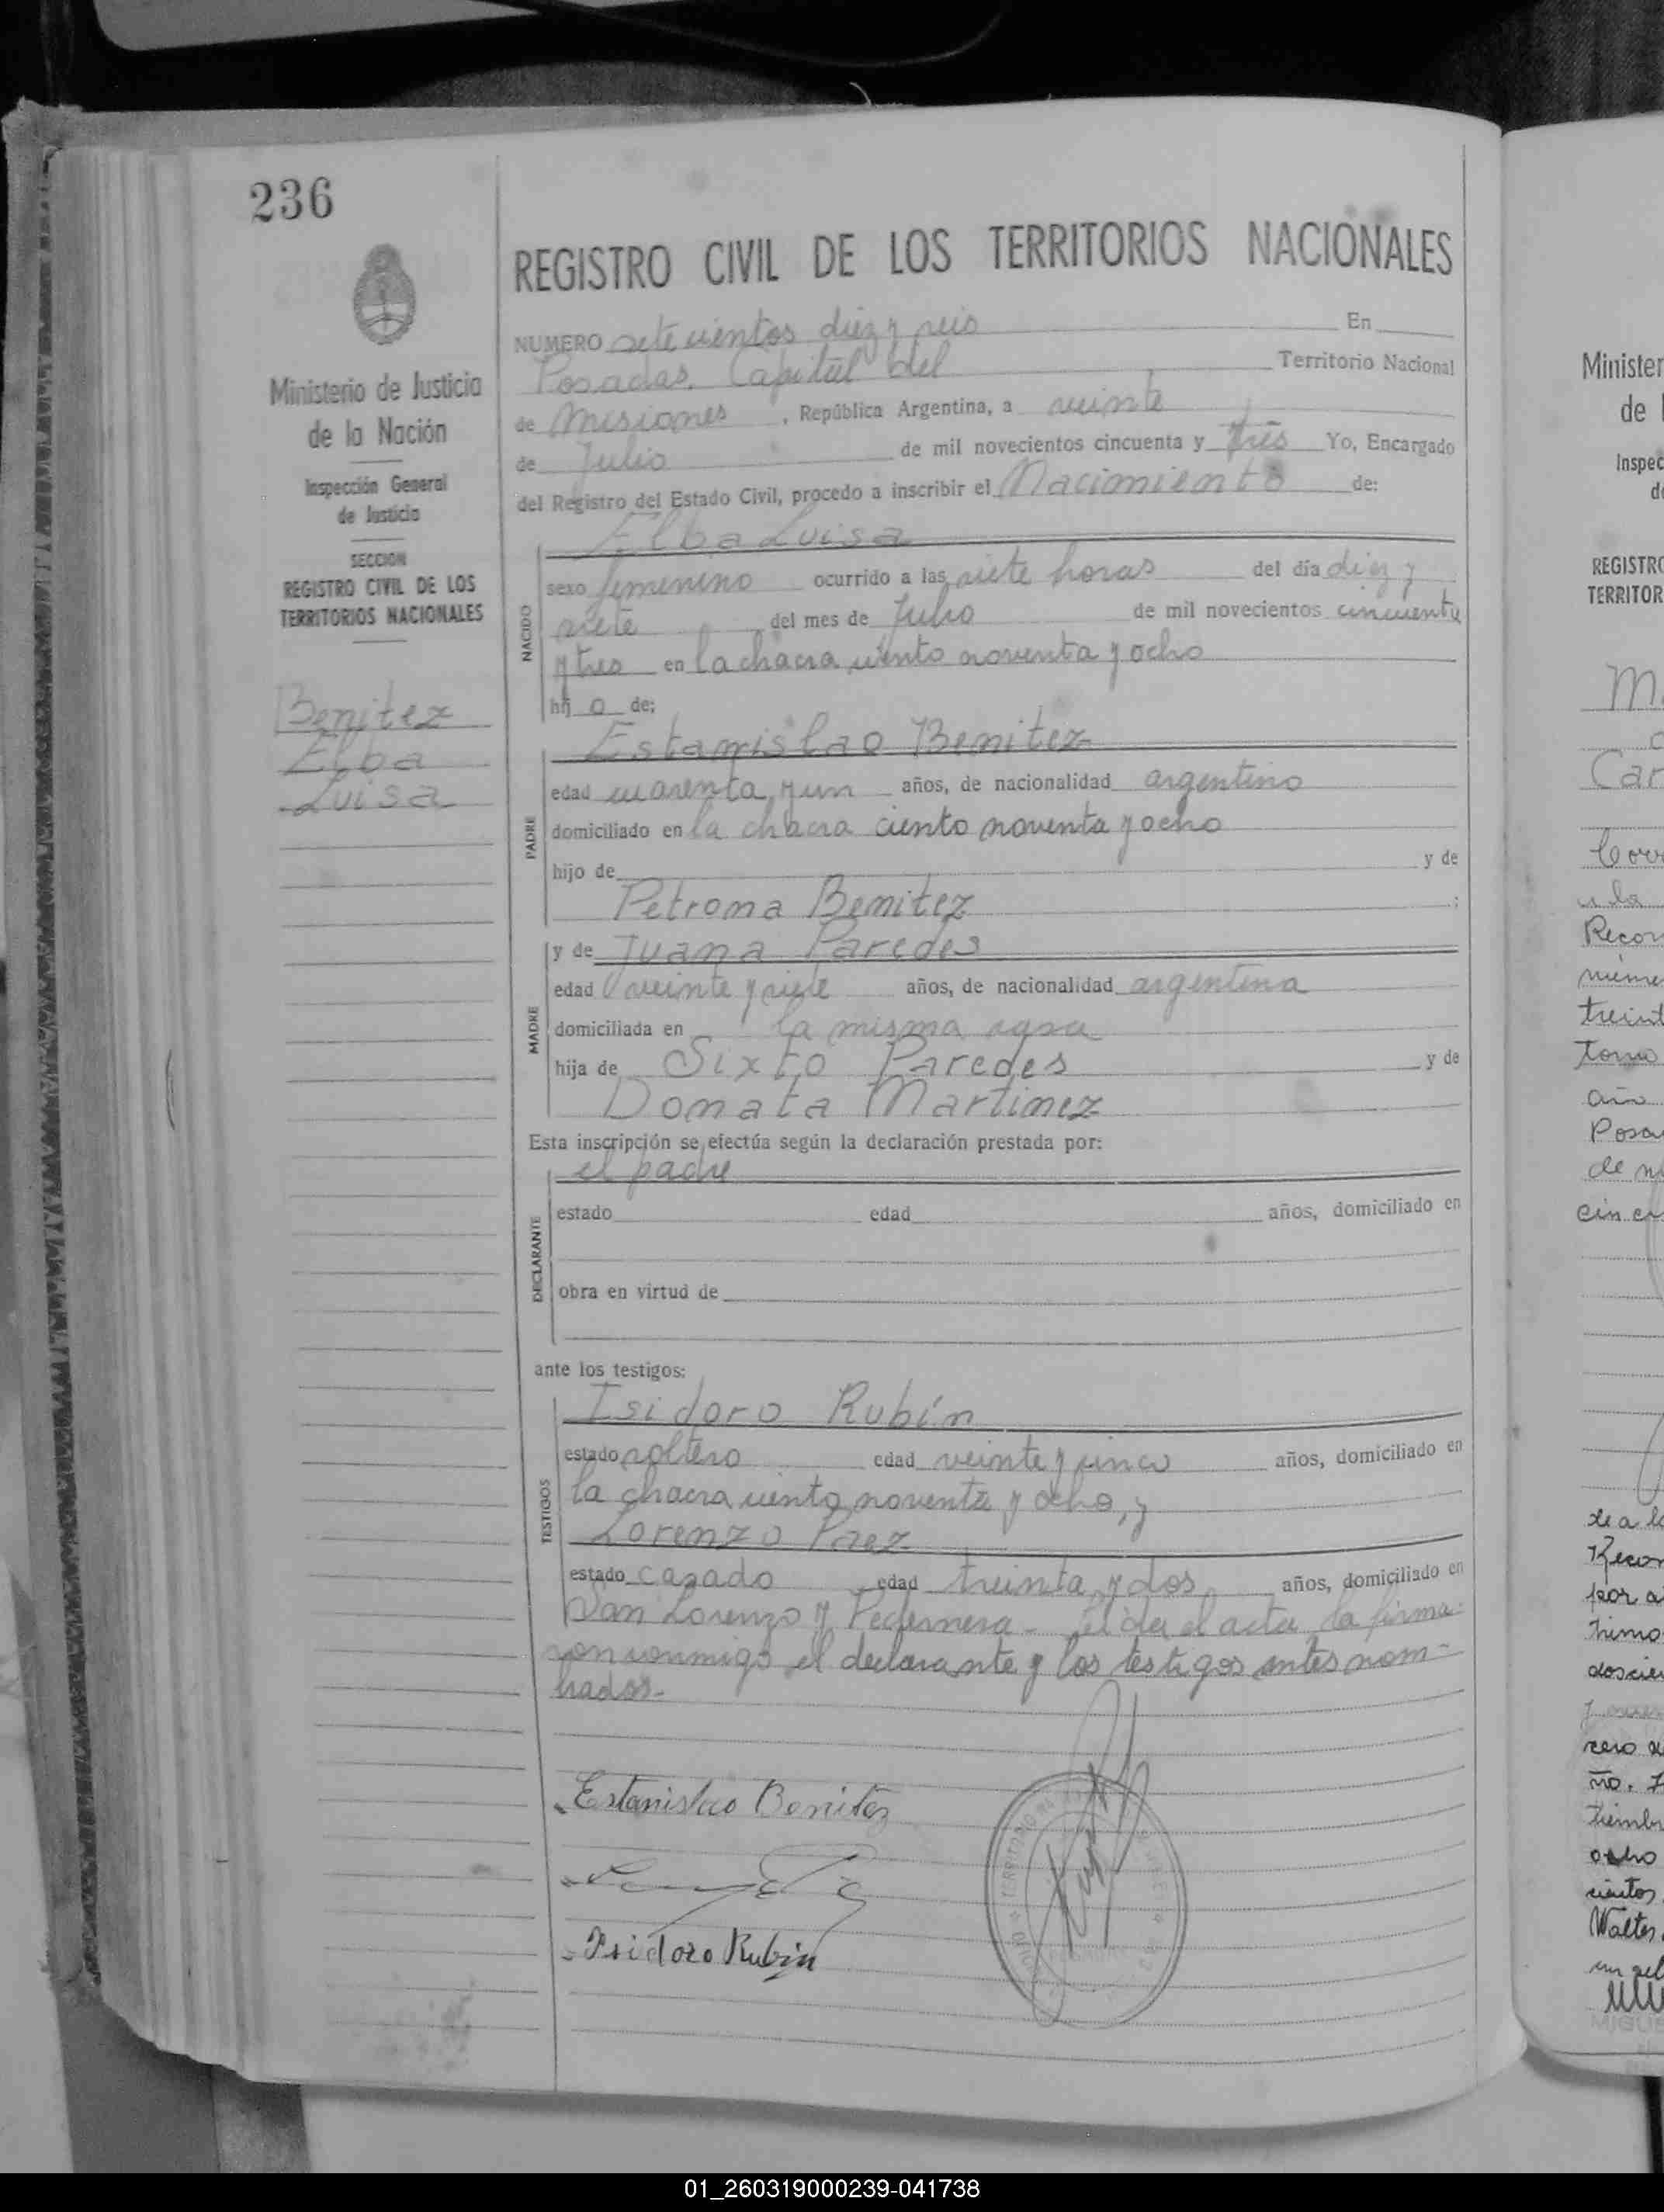 236
REGISTRO CIVIL DE LOS TERRITORIOS NACIONALES
NUMERO setecientos diez y seis En
Posadas, Capital del Territorio Nacional
de Misiones, República Argentina, a veinte
de Julio de mil novecientos cincuenta y tres Yo, Encargado
del Registro del Estado Civil, procedo a inscribir el Nacimiento de:
Elba Luisa
sexo femenino ocurrido a las siete horas del día diez y
siete del mes de Julio de mil novecientos cincuenta
y tres en la chacra ciento noventa y ocho
hij a de:
NACIDO
Estanislao Benitez
edad cuarenta y un años, de nacionalidad argentino
domiciliado en la chacra ciento noventa y ocho
hijo de y de
Petrona Benitez ;
PADRE
y de Juana Paredes
edad veinte y siete años, de nacionalidad argentina
domiciliada en la misma
hija de Sixto Paredes y de
Donata Martinez
MADRE
Esta inscripción se efectúa según la declaración prestada por:
el padre
estado edad años, domiciliado en
obra en virtud de
DECLARANTE
ante los testigos:
Isidoro Rubín
estado soltero edad veinte y cinco años, domiciliado en
la chacra ciento noventa y ocho, y
Lorenzo Paez
estado casado edad treinta y dos años, domiciliado en
San Lorenzo y Pedernera - el acta, la firma
con conmigo, el declarante y los testigos antes nom-
brados-
TESTIGOS
Estanislao Benitez
Isidoro Rubin
Ministerio de Justicia
de la Nación
Inspección General
de Justicia
SECCION
REGISTRO CIVIL DE LOS
TERRITORIOS NACIONALES
Benitez
Elba
Luisa
Minister
de
Inspec
REGISTRO
TERRITOR
Car
Recon
treint
Posa
de
Recon
por
Walter
01_260319000239-041738